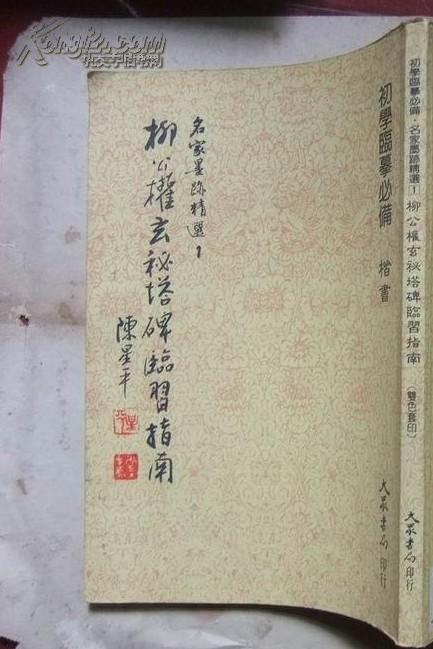 初學臨摹必備 楷書
名家墨跡精選1
柳公權玄祕塔碑臨習指南
陳星平
大眾書局印行
初學臨摹必備·名家墨跡精選1 柳公權玄祕塔碑臨習指南(雙色套印)
大眾書局印行